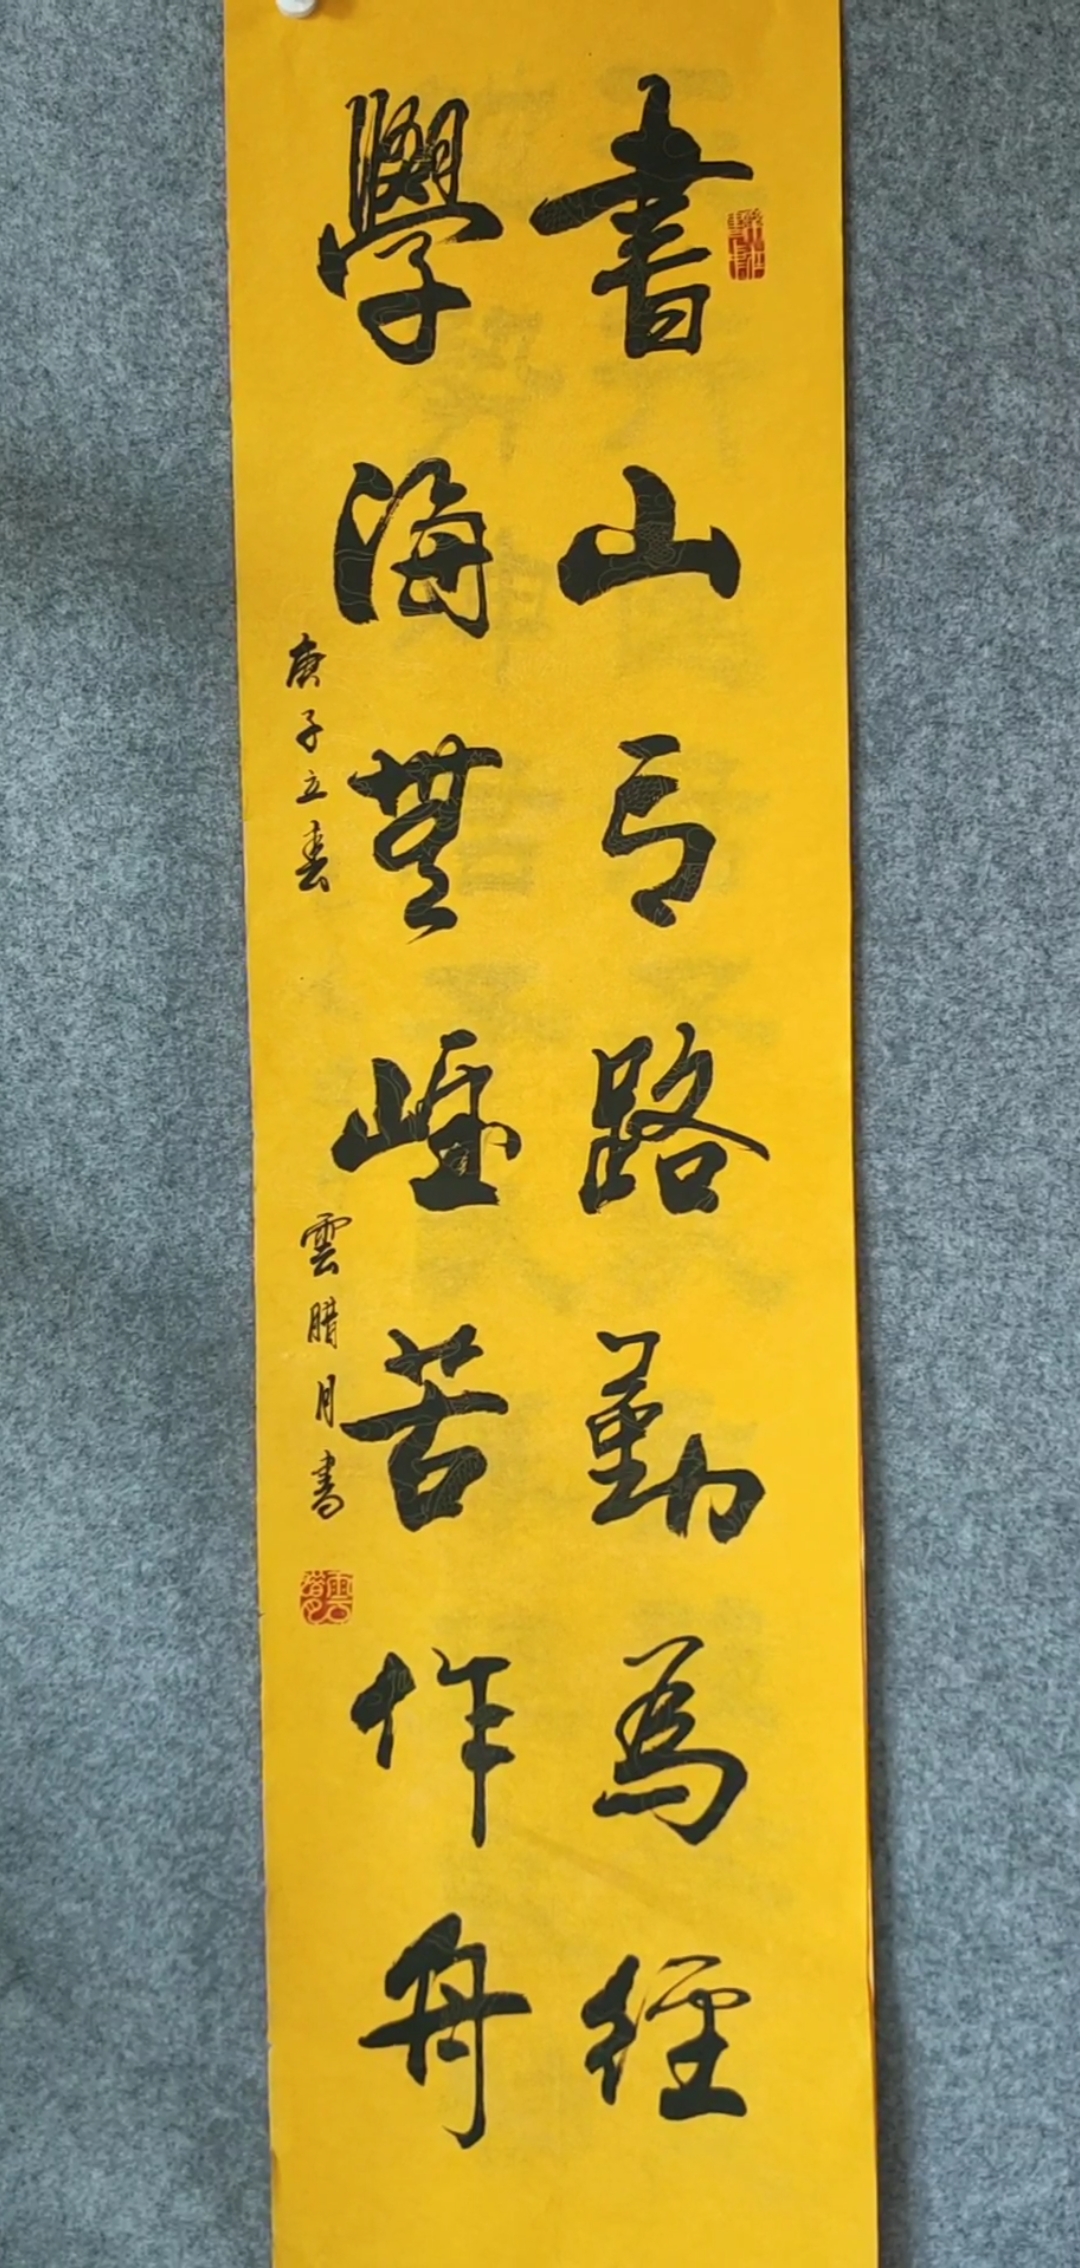 書山有路勤為徑
學海無崖苦作舟
庚子立春
雲腊月書